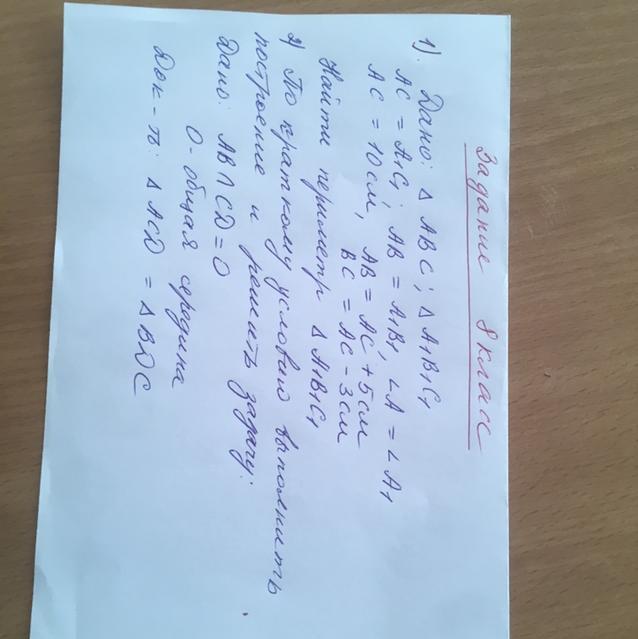 Задание 8 класс
1). Дано: Δ ABC; Δ A1B1C1
AC = A1C1; AB = A1B1, ∠A = ∠A1
AC = 10 см, AB = AC + 5 см
BC = AC - 3 см
Найти периметр Δ A1B1C1
2) По краткому условию выполнить
построение и решить задачу:
Дано: AB ∩ CD = O
O - общая середина
Док-ть: Δ ACD = Δ BDC